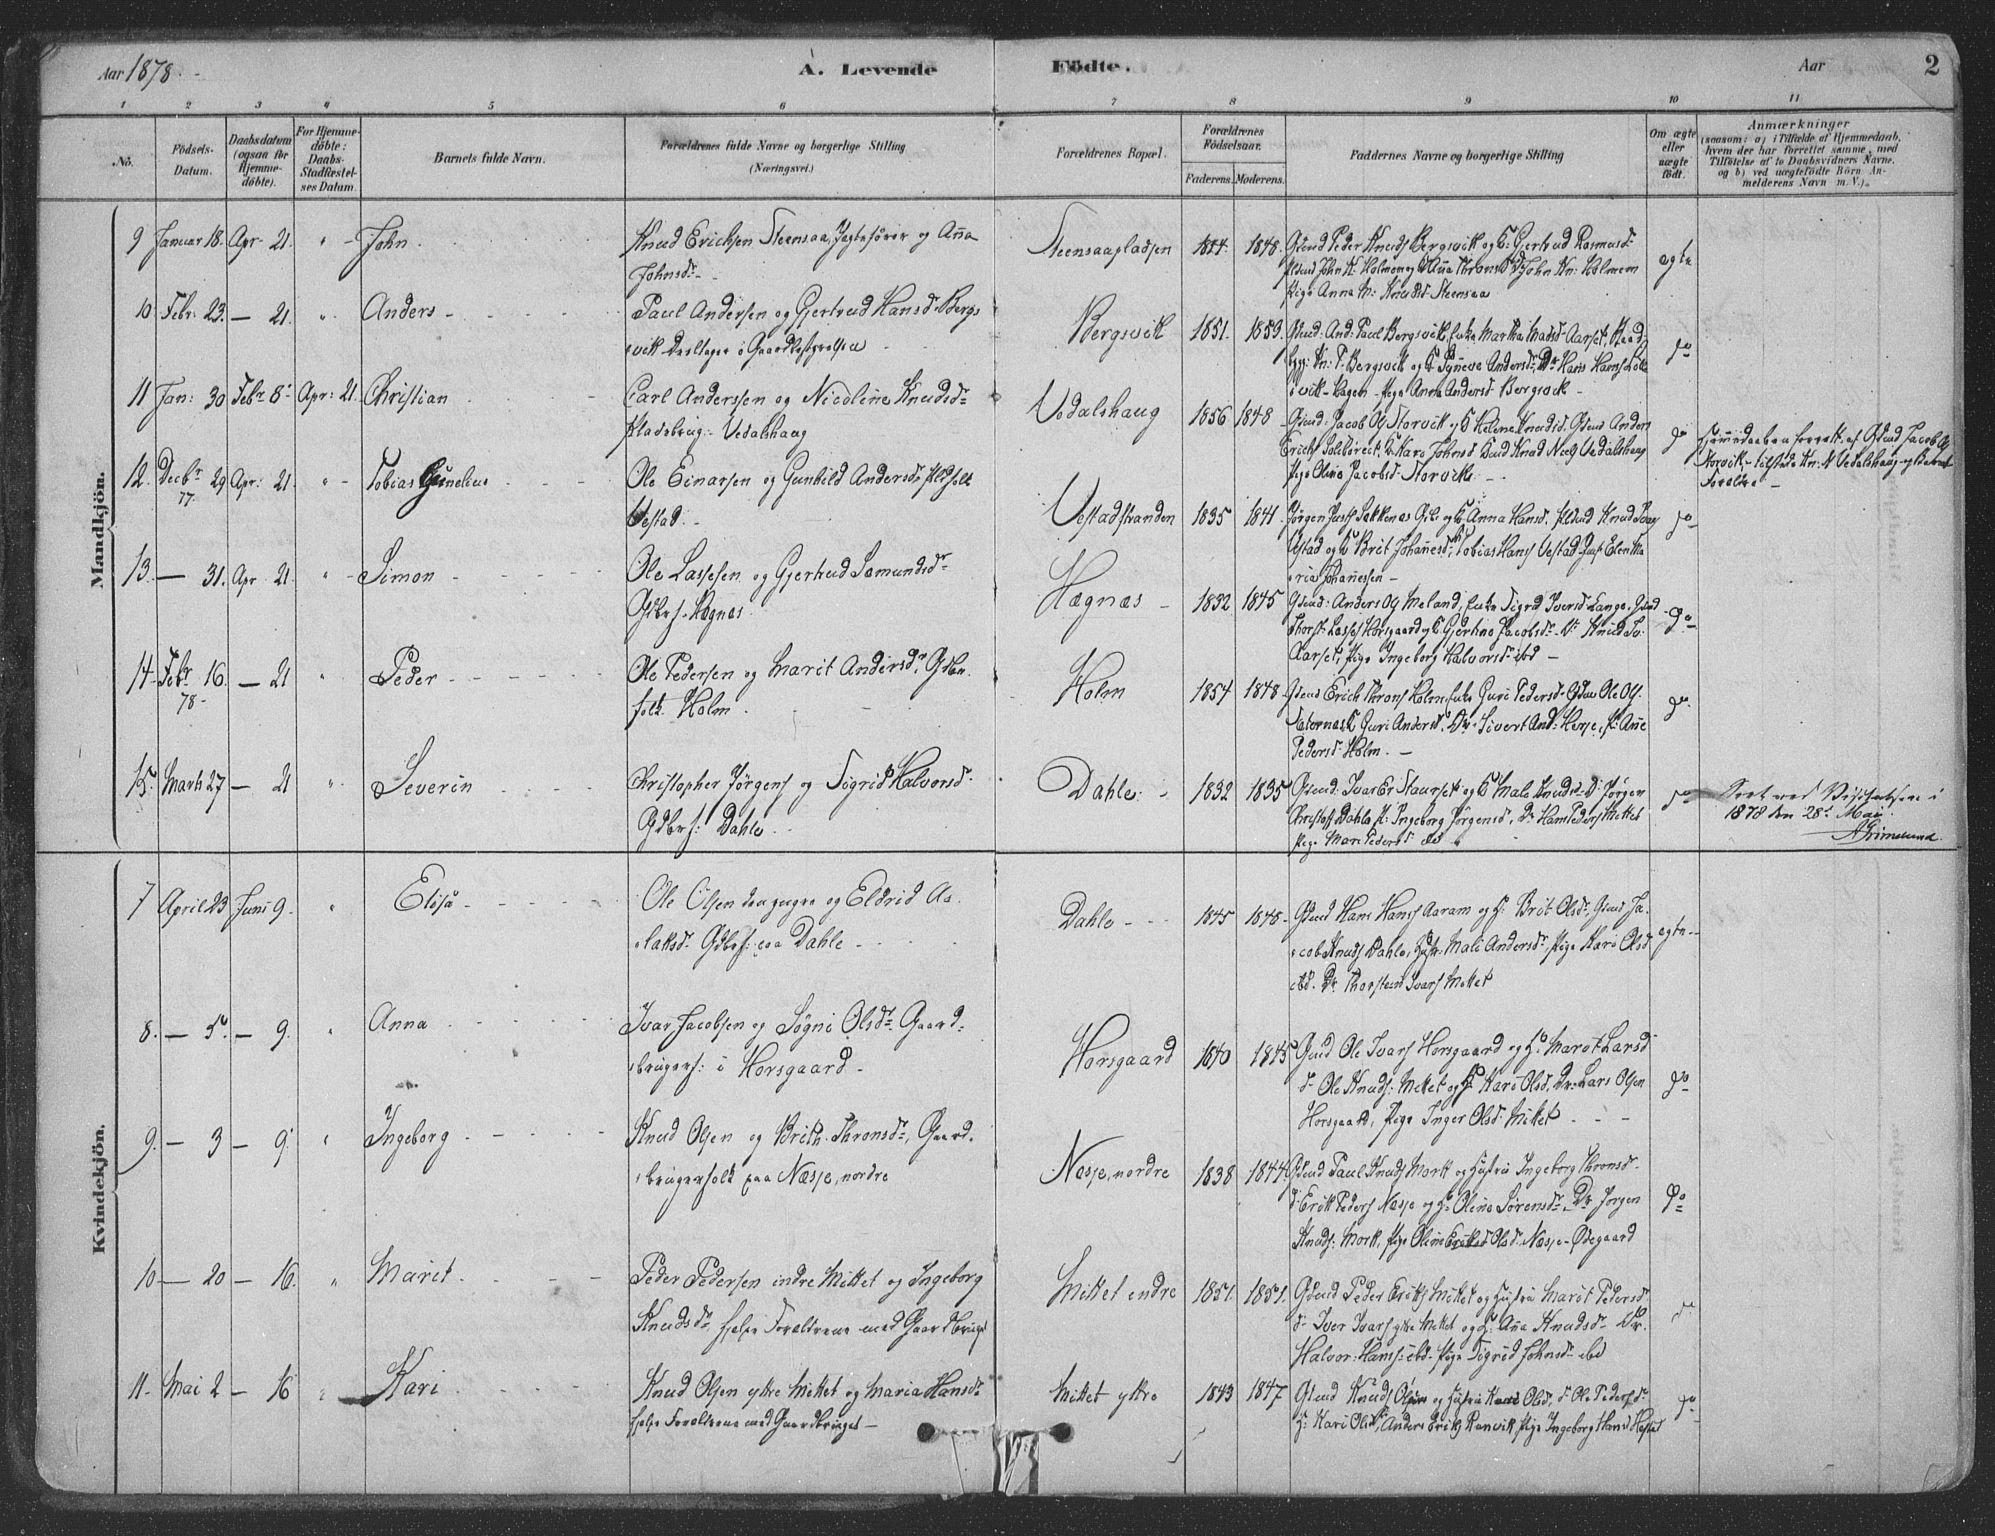 Aar 1878. A. Levende Födte. Aar 2
1 2 3 4 5 6 7 8 9 10 11
No. Födsels-Datum. Daabsdatum (ogsaa för Hjemme-döbte). For Hjemme-döbte: Daabs-Stadfæstel-ses Datum. Barnets fulde Navn. Forældrenes fulde Navne og borgerlige Stilling (Næringsvei.) Forældrenes Bopæl. Forældrenes Födselsaar. Faderens. Moderens. Faddernes Navne og borgerlige Stilling Om ægte eller uægte födt. Anmærkninger (saasom: a) i Tilfælde af Hjemmedaab, hvem der har forrettet samme, med Tilföielse af to Daabsvidners Navne, og b) ved uægtefödte Börn An-melderens Navn m. V.).
Mandkjön.
9 Januar 18. Apr. 21. " John Knud Erichsen Steensaa, Jagtefører og Anna
Johnsdr. Steensaapladsen 1824. 1848. Gdmd Peder Knuds Bergsvik og K: Gjertrud Rasmusdr
John Kn: Holmem
Pige Anna M: Knudsd Steensaa ægte
10 Febr: 23. — 21. " Anders Paul Andersen og Gjertrud Hansd Bergs
vik Deeltager i Gaardbestyrelsen Bergsvik 1851. 1853. Gdmd: And: Paul Bergsvik, Enke Martha Madsd Aarset,
Kn: P. Bergsvik og K Synneve Andersdr. Dr Hans Hans
vik-Hagen Pige Anna Andersd Bergsvik do
11 Jan: 30 Febr 8 Apr: 21. Christian Carl Anderssen og Nicoline Knudsdr
Pladsbrug: Vedalshaug Vedalshaug 1856 1848 Gdmd: Jacob Ol Storvik og K Helene Knudsd. Gdmd Anders
Erichs K Kari Johnsd Knud Vedalshaug
Pige Oline Jacobsd Storvik do Hjemmedaaben forrett. af Gdmd Jacob O
Storvik, tilstede Kn: N Vedalshaug og Barnets
Forældre
12. Decbr 29 77. Apr: 21. " Tobias Gunelius Ole Einarsen og Gunhild Andersdr Pladsfolk
Vestad. Vestadstranden 1835 1841. Jørgen og K Anna Hansd. Knud
Ustad og K Brit Johanesd, Tobias Hans Vestad Pige Elen Ma
ria Johanessen do
13. — 31. Apr 21. " Simon Ole Lassesen og Gjertrud Samundsdr
Gdbrf. Hegnæs. Hægnæs 1832 1845 Gdmd: Anders Ol Meland, Enke Sigrid Iversd Lange. Gdmd
Thorst: Lasses Horsgaard og K Gjertine Jacobsdr. Dr Knud
Aarset, Pige Ingeborg Halvorsdr ibd do
14. Febr 16. 78. — 21 " Peder Ole Pedersen og Marit Andersdr, Gdbr.
folk Holm. Holm 1854 1848 Gdmd Erich Throns Holm, Enke Guri Pedersdr Gdmd Ole Ol
K Guri Andersd. Dr. Sivert And: Herje, P. Ane
Pedersd Holm. do
15. Marts 27 — 21 " Severin Christopher Jørgens og Sigrid Halvorsdr
Gdbrf: Dahle Dahle 1832 1835 Gdmd: Ivar Er Staurset og K Male Knudsdr Dr Jørgen
Christoff. Dahle P: Ingeborg Jørgensd, Dr Hans Peders Mittet
Pige Mari Pedersd ibd do Seet ved Visitatsen i
1878 den 28d Mai.
Grimelund.
Kvindekjön.
7 April 23 Juni 9. " Elisa Ole Olsen den yngre og Eldrid As
laksd. Gdbrf: paa Dahle Dahle 1845 1848 Gdmd Hans Hans Aaram og H: Brit Olsdr. Gdmd Ja
cob Knuds Dahle, Hustr. Mali Andersdr, Pige Kari Olsd
ibd. Dr Thorstein Ivars Mittet ægte
8. — 5. — 9. " Anna Ivar Jacobsen og Søgni Olsdr. Gaard
brugerf: i Horsgaard Horsgaard 1840 1845 Gmd Ole Ivars Horsgaard og Ho Marit Larsd
dr Ole Knuds: Mittet og Ho Kari Olsd. Dr: Lars Olsen
Horsgaard, Pige Inger Olsd Mittet do
9. — 3 — 9. " Ingeborg Knud Olsen og Brith Thronsdr, Gaard
brugerfolk paa Næsje, nordre Næsje, nordre 1838 1844. Gdmd Paul Knuds Mork og Hustru Ingeborg Thronsdr
dr Erik Peders Næsje og Ho Oline Sørensdr. Dr Jørgen
Knuds: Mork, Pige Oline Olsd. Næsje-Ødegaard do
10 — 20 — 16. " Marit Peder Pedersen indre Mittet og Ingeborg
Knudsdr hjelpe Forældrene med Gaardbruget Mittet indre 1851. 1851. Gdmd Peder Eriks Mittet og Hustru Marit Pedersd
dr Iver Ivars ytre Mittet og H: Ana Knudsdr Dr.
Halvor: Hans: ibd Pige Sigrid Johnsdr ibd do
11. Mai 2 — 16 " Kari Knud Olsen ytre Mittet og Maria Hansdr
hjelpe Forældrene med Gaardbruget Mittet ytre 1843 1847 Gdmd Knuds Olsen og Hustru Olsd, dr Ole Peders dr
H: Kari Olsd, Anders Eriks Ranvik, Pige Ingeborg Hansd do